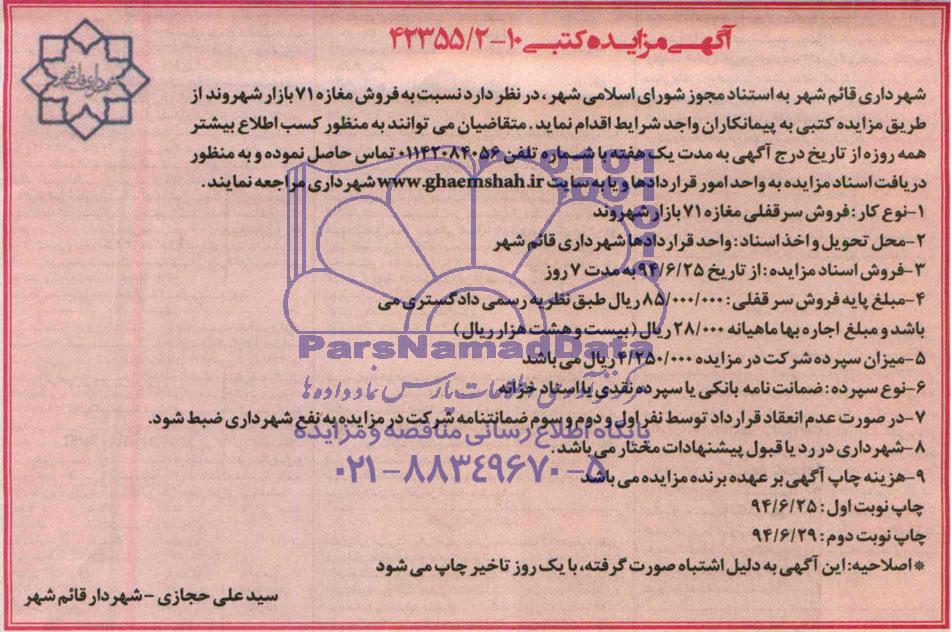 آگهی مزایده کتبی ۱۰-۴۲۳۵۵/۲
شهرداری قائم شهر به استناد مجوز شورای اسلامی شهر، در نظر دارد نسبت به فروش مغازه ۷۱ بازار شهروند از
طریق مزایده کتبی به پیمانکاران واجد شرایط اقدام نماید. متقاضیان می توانند به منظور کسب اطلاع بیشتر
همه روزه از تاریخ درج آگهی به مدت یک هفته با شماره تلفن ۰۱۱۴۲۰۸۴۰۵۶ تماس حاصل نموده و به منظور
دریافت اسناد مزایده به واحد امور قراردادها و یا به سایت www.ghaemshah.ir شهرداری مراجعه نمایند.
۱-نوع کار: فروش سرقفلی مغازه ۷۱ بازار شهروند
۲-محل تحویل و اخذ اسناد: واحد قراردادها شهرداری قائم شهر
۳-فروش اسناد مزایده: از تاریخ ۹۴/۶/۲۵ به مدت ۷ روز
۴-مبلغ پایه فروش سرقفلی: ۸۵/۰۰۰/۰۰۰ ریال طبق نظریه رسمی دادگستری می
باشد و مبلغ اجاره بها ماهیانه ۲۸/۰۰۰ ریال (بیست و هشت هزار ریال)
۵-میزان سپرده شرکت در مزایده ۴/۲۵۰/۰۰۰ ریال می باشد
۶-نوع سپرده: ضمانت نامه بانکی یا سپرده نقدی یا اسناد خزانه
۷-در صورت عدم انعقاد قرارداد توسط نفر اول و دوم و سوم ضمانتنامه شرکت در مزایده به نفع شهرداری ضبط شود.
۸-شهرداری در رد یا قبول پیشنهادات مختار می باشد.
۹-هزینه چاپ آگهی بر عهده برنده مزایده می باشد
چاپ نوبت اول: ۹۴/۶/۲۵
چاپ نوبت دوم: ۹۴/۶/۲۹
*اصلاحیه: این آگهی به دلیل اشتباه صورت گرفته، با یک روز تاخیر چاپ می شود
سید علی حجازی - شهردار قائم شهر
ParsNamadData
مرکز فرآوری اطلاعات پارس نماد داده ها
پایگاه اطلاع رسانی مناقصه و مزایده
۰۲۱-۸۸۳۴۹۶۷۰-۵